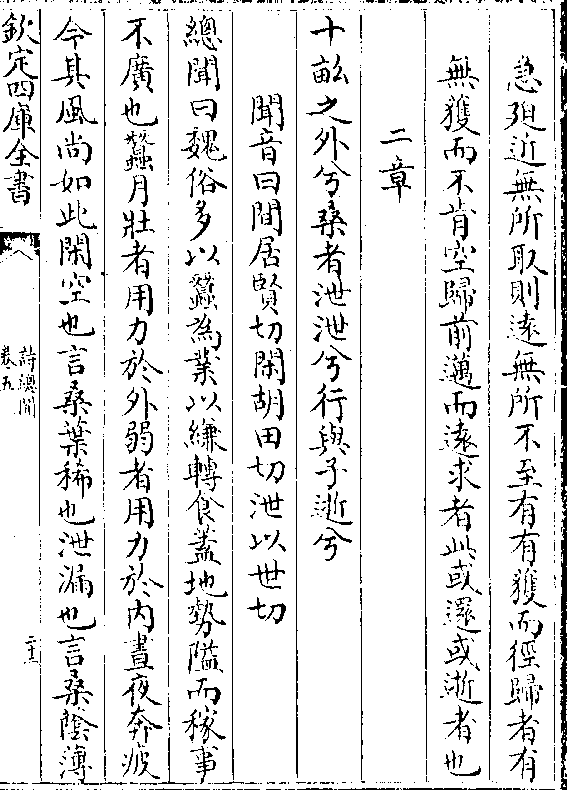 急廹近無所取則逺無所不至有有獲而徑歸者有
無獲而不肯空歸前邁而逺求者此或還或逝者也
二章
十畝之外兮桑者泄泄兮行與子逝兮
聞音曰間居賢切閑胡田切泄以世切
總聞曰魏俗多以蠶為業以縑轉食蓋地勢隘而稼事
不廣也蠶月壯者用力於外弱者用力於内晝夜奔疲
今其風尚如此閑空也言桑葉稀也泄漏也言桑蔭薄
欽定四庫全書
詩總聞
卷五
二十三